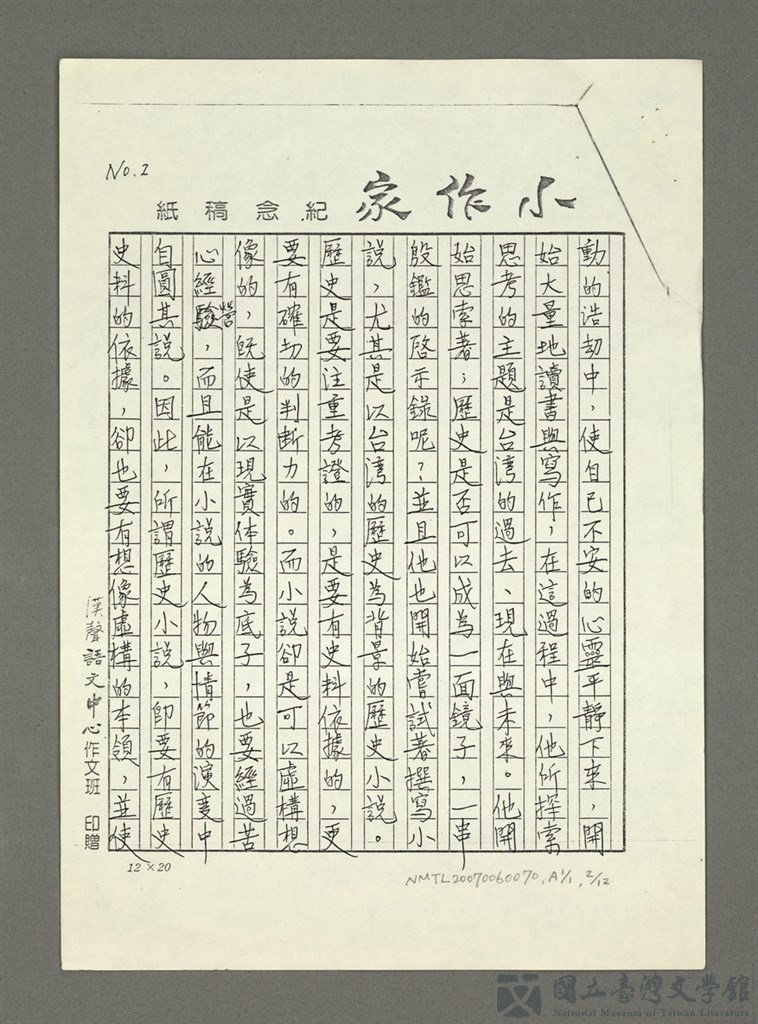 No.2
小作家 紀念稿紙
動的浩劫中，使自己不安的心靈平靜下來，開
始大量地讀書與寫作，在這過程中，他所探索
思考的主題是台湾的過去、現在與未來。他開
始思索著；歷史是否可以成為一面鏡子，一串
殷鑑的啓示錄呢？並且他也開始嘗試著撰寫小
說，尤其是以台湾的歷史為背景的歷史小說。
歷史是要注重考證的，是要有史料依據的，更
要有確切的判断力的。而小說卻是可以虛構想
像的，既使是以現實体驗為底子，也要經過苦
心經營，而且能在小說的人物與情節的演变中
自圓其說。因此，所謂歷史小說，即要有歷史
史料的依據，卻也要有想像虛構的本領，並使
漢聲語文中心作文班 印贈
12×20
NMTL20070060070, A1/1, 2/12
國立臺灣文學館
National Museum of Taiwan Literature